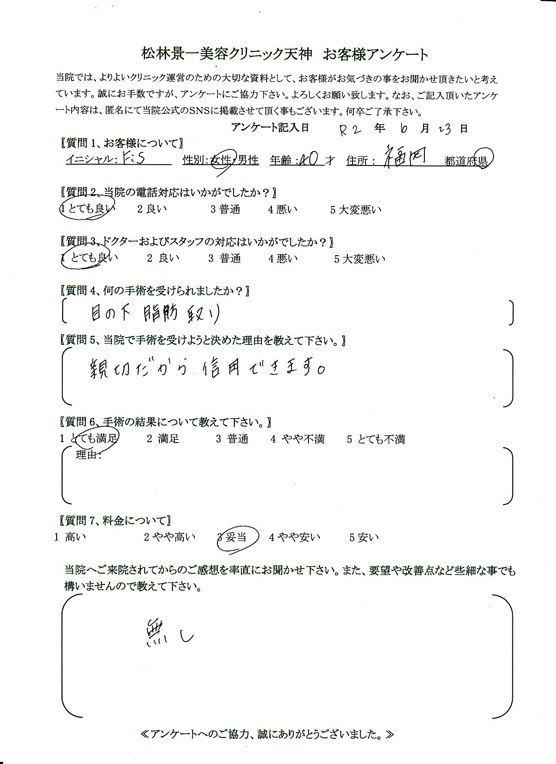 松林景一美容クリニック天神　お客様アンケート
当院では、よりよいクリニック運営のための大切な資料として、お客様がお気づきの事をお聞かせ頂きたいと考え
ています。誠にお手数ですが、アンケートにご協力下さい。よろしくお願い致します。なお、ご記入頂いたアンケ
ート内容は、匿名にて当院公式のSNSに掲載させて頂く事もございます。何卒ご了承下さい。
アンケート記入日　R2 年 6 月 23 日
〖質問1、お客様について〗
イニシャル: F.S　性別:女性・男性　年齢:40 才　住所: 福岡　都道府県
〖質問2、当院の電話対応はいかがでしたか？〗
1 とても良い　2 良い　3 普通　4 悪い　5 大変悪い
〖質問3、ドクターおよびスタッフの対応はいかがでしたか？〗
1 とても良い　2 良い　3 普通　4 悪い　5 大変悪い
〖質問4、何の手術を受けられましたか？〗
目の下 脂肪 取り
〖質問5、当院で手術を受けようと決めた理由を教えて下さい。〗
親切だから 信用できます。
〖質問6、手術の結果について教えて下さい。〗
1 とても満足　2 満足　3 普通　4 やや不満　5 とても不満
理由:
〖質問7、料金について〗
1 高い　2 やや高い　3 妥当　4 やや安い　5 安い
当院へご来院されてからのご感想を率直にお聞かせ下さい。また、要望や改善点など些細な事でも
構いませんので教えて下さい。
無し
≪アンケートへのご協力、誠にありがとうございました。≫